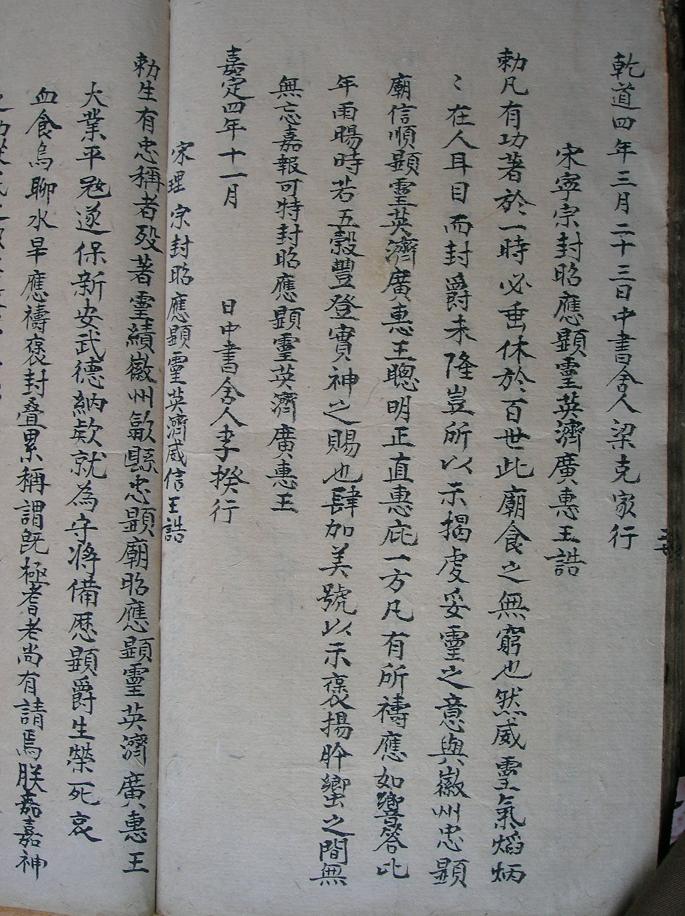 乾道四年三月二十三日中書舍人梁克家行
宋寧宗封昭應顯靈英濟廣惠王誥
勅凡有功著於一時必垂休於百世此廟食之無窮也然威靈氣熖炳
〻在人耳目而封爵未隆豈所以示揭虔妥靈之意與徽州忠顯
廟信順顯靈英濟廣惠王聰明正直惠庇一方凡有所禱應如響答比
年雨暘時若五穀豐登實神之賜也肆加美號以示褒揚肸蠁之間無
無忘嘉報可特封昭應顯靈英濟廣惠王
嘉定四年十一月 日中書舍人李揆行
宋理宗封昭應顯靈英濟威信王誥
勅生有忠稱者歿著靈績徽州歙縣忠顯廟昭應顯靈英濟廣惠王
大業平冦遂保新安武德納欵就為守將備歷顯爵生榮死哀
血食烏聊水旱應禱褒封叠累稱謂既極耆老尚有請焉朕嘉嘉神